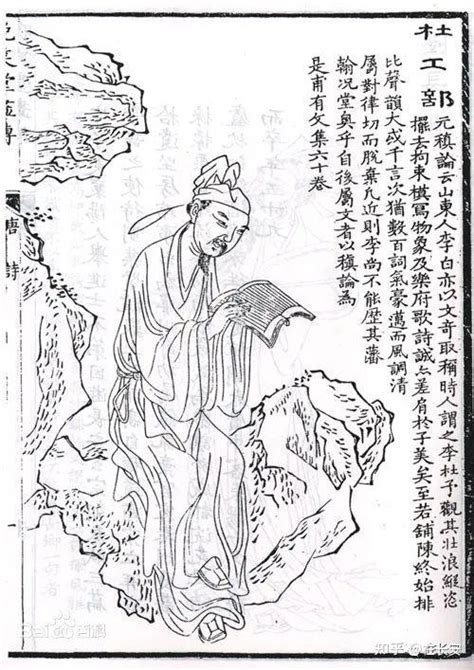 杜工部
元稹論云山東人李白亦以文奇取稱時人謂之李杜予觀其壯浪縱恣
擺去拘束模寫物象及樂府歌詩誠亦差肩於子美矣至若鋪陳終始排
比聲韻大或千言次猶數百詞氣豪邁而風調清
屬對律切而脫棄凡近則李尚不能歷其藩
翰况堂奧乎自後屬文者以稹論為
是甫有文集六十卷
笑堂畫傳
唐詩
Bai百科
知乎 @在长安